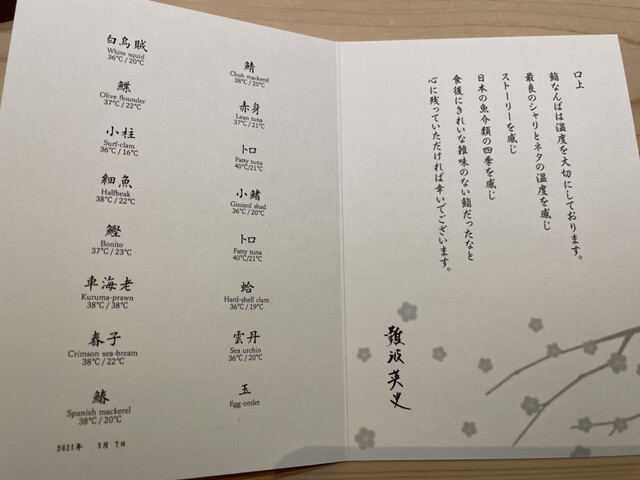 白烏賊
White squid
36℃/20℃
鰈
Olive flounder
37℃/22℃
小柱
Surf-clam
36℃/16℃
細魚
Halfbeak
38℃/22℃
鰹
Bonito
37℃/23℃
車海老
Kuruma-prawn
38℃/38℃
春子
Crimson sea-bream
38℃/22℃
鰆
Spanish mackerel
38℃/20℃
2021年 3月 7日
鯖
Chub mackerel
38℃/20℃
赤身
Lean tuna
37℃/21℃
トロ
Fatty tuna
40℃/21℃
小鰭
Gizzard shad
36℃/20℃
トロ
Fatty tuna
40℃/21℃
蛤
Hard-shell clam
36℃/19℃
雲丹
Sea urchin
36℃/20℃
玉
Egg-omlet
口上
鮨なんばは温度を大切にしております。
最良のシャリとネタの温度を感じ
ストーリーを感じ
日本の魚介類の四季を感じ
食後にきれいな雑味のない鮨だったなと
心に残っていただければ幸いでございます。
難波英史